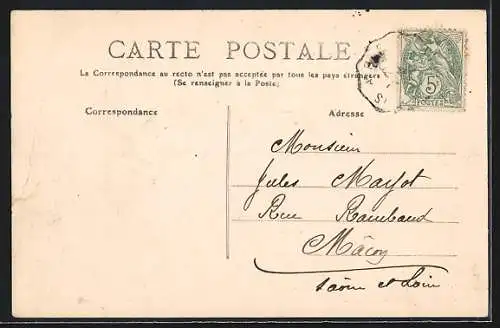 CARTE POSTALE
La Correspondance au recto n'est pas acceptée par tous les pays étrangers
(Se renseigner à la Poste)
Correspondance
Adresse
5c
POSTES
Monsieur
Jules
Rue Rambaud
Mâcon
Saône et Loire